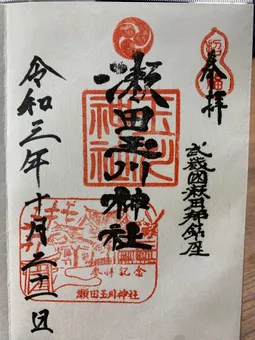 奉拝
武蔵国荏原郡鎮座
瀬田玉川神社
令和三年十月二十一日
参拝記念
瀬田玉川神社